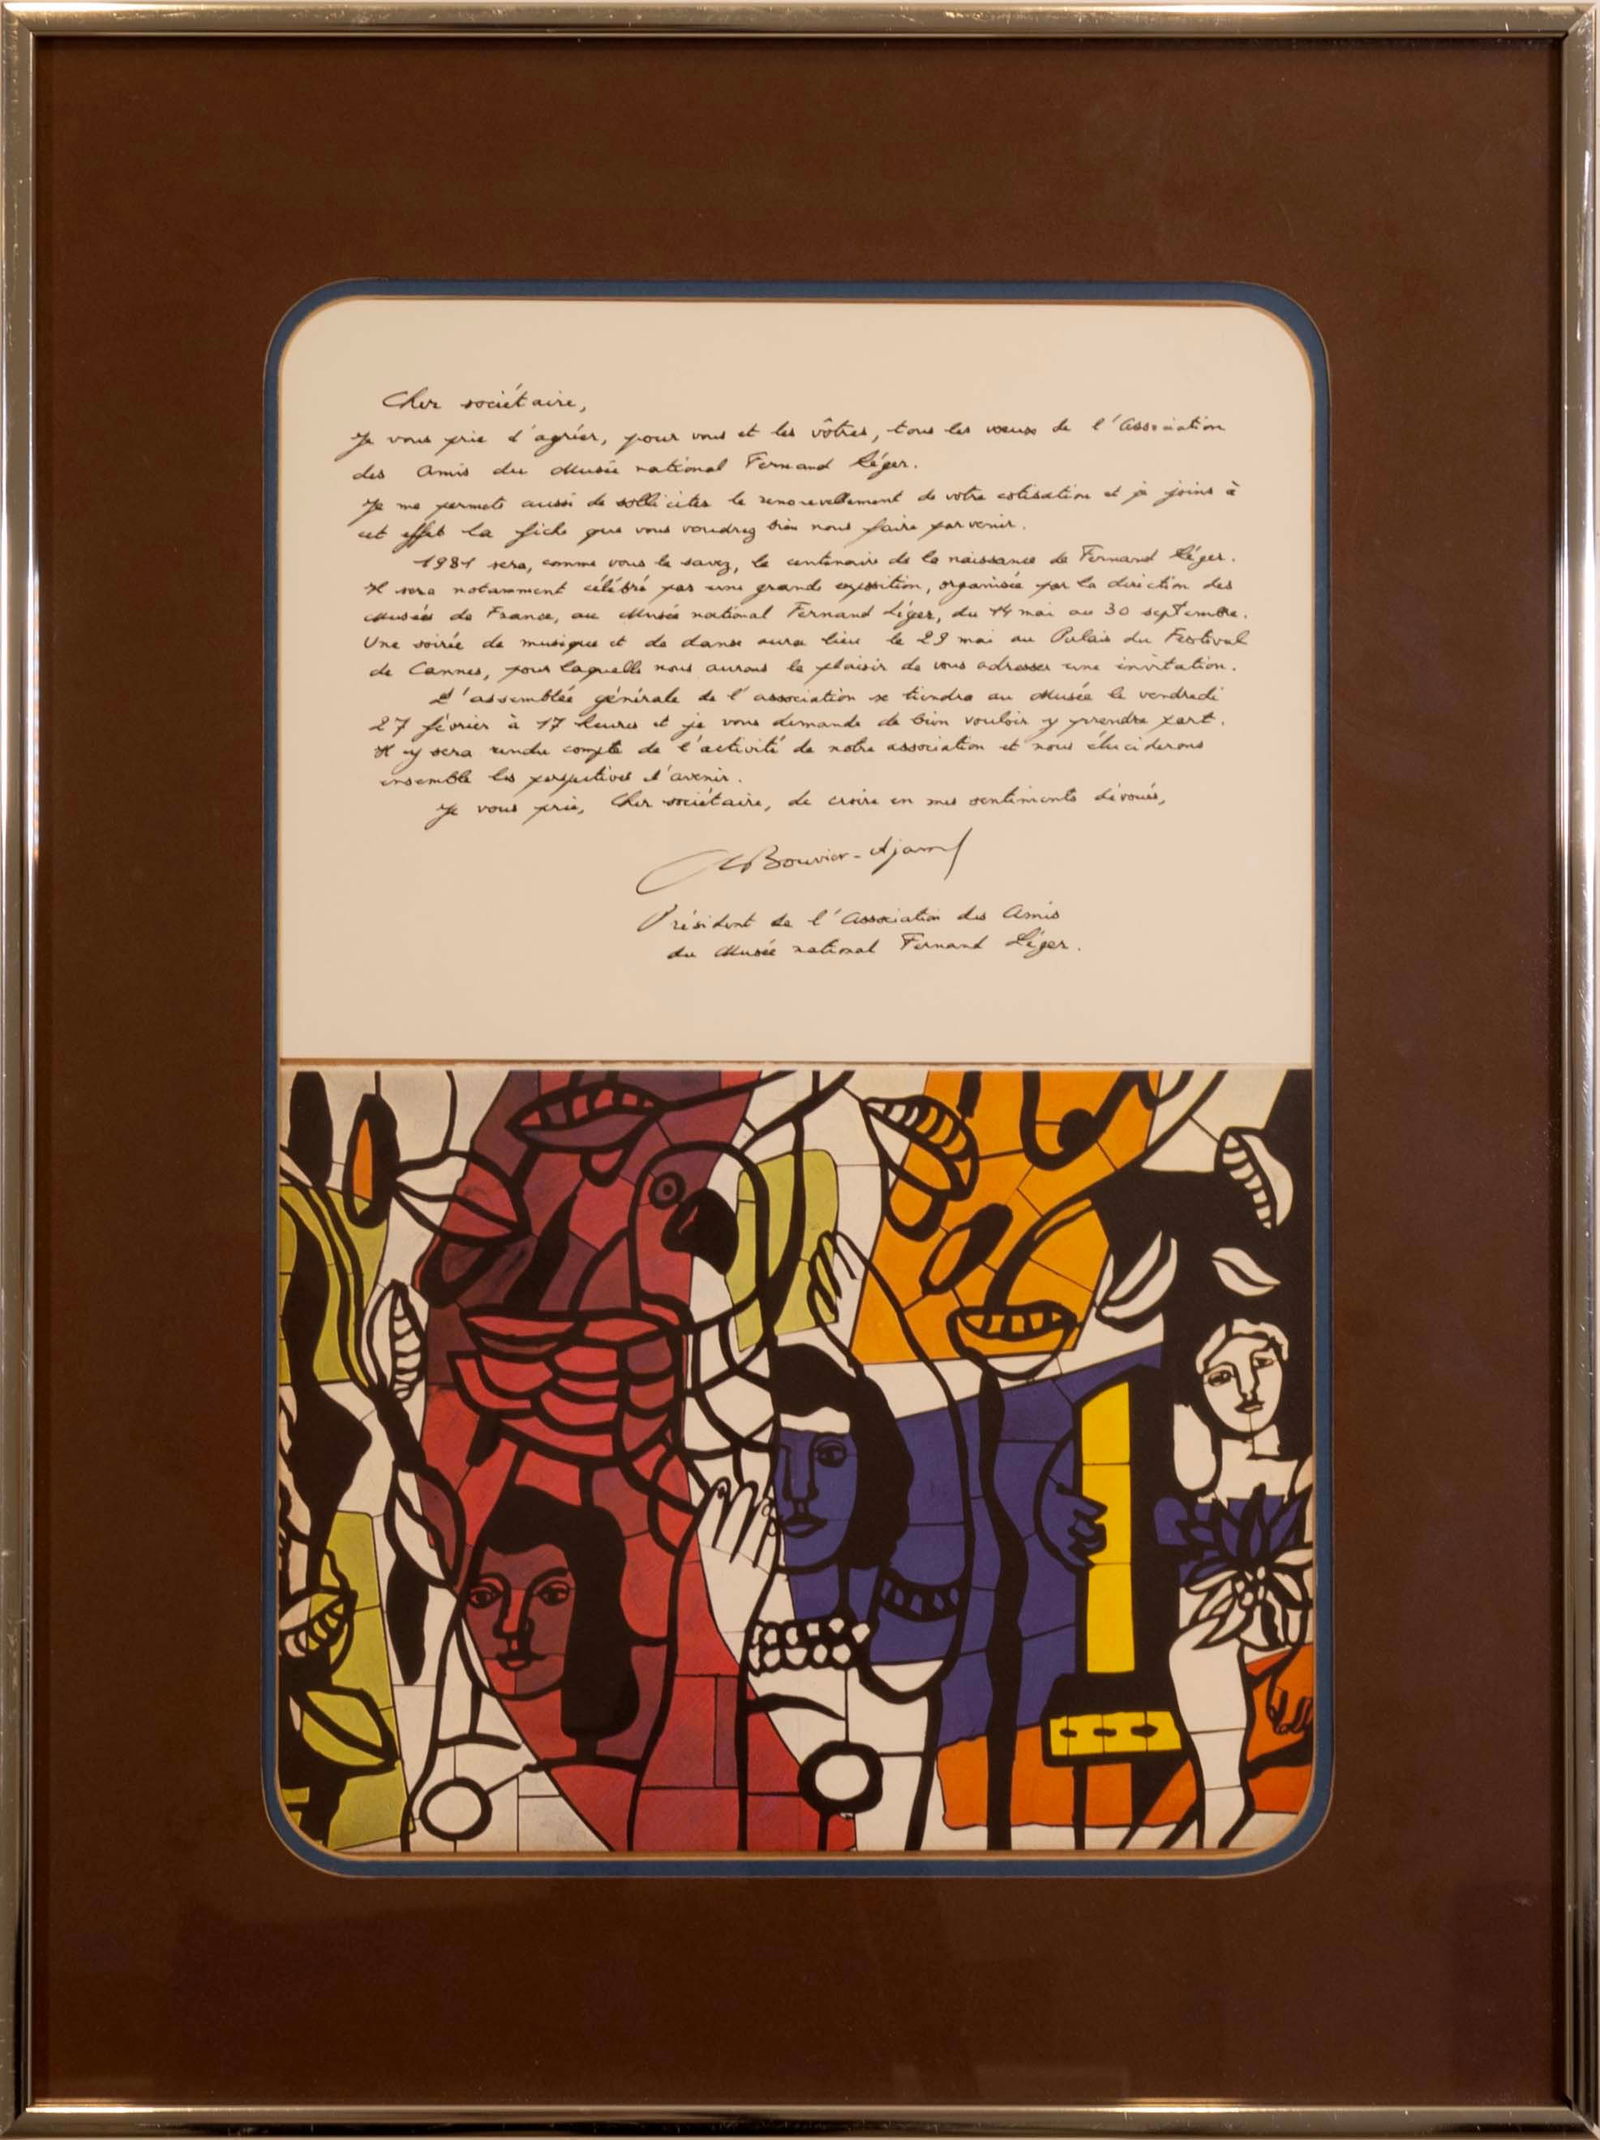 Cher sociétaire,
Je vous prie d'agréer, pour vous et les vôtres, tous les vœux de l'Association
des Amis du Musée national Fernand Léger.
Je me permets aussi de solliciter le renouvellement de votre cotisation et je joins à
cet effet la fiche que vous voudrez bien nous faire parvenir.
1981 sera, comme vous le savez, le centenaire de la naissance de Fernand Léger.
Il sera notamment célébré par une grande exposition, organisée par la direction des
Musées de France, au Musée national Fernand Léger, du 14 mai au 30 septembre.
Une soirée de musique et de danse aura lieu le 29 mai au Palais du Festival
de Cannes, pour laquelle nous aurons le plaisir de vous adresser une invitation.
L'assemblée générale de l'association se tiendra au Musée le vendredi
27 février à 17 heures et je vous demande de bien vouloir y prendre part.
Il y sera rendu compte de l'activité de notre association et nous éluciderons
ensemble les perspectives d'avenir.
Je vous prie, Cher sociétaire, de croire en mes sentiments dévoués,
Bouvier-Ajam
Président de l'Association des Amis
du Musée national Fernand Léger.